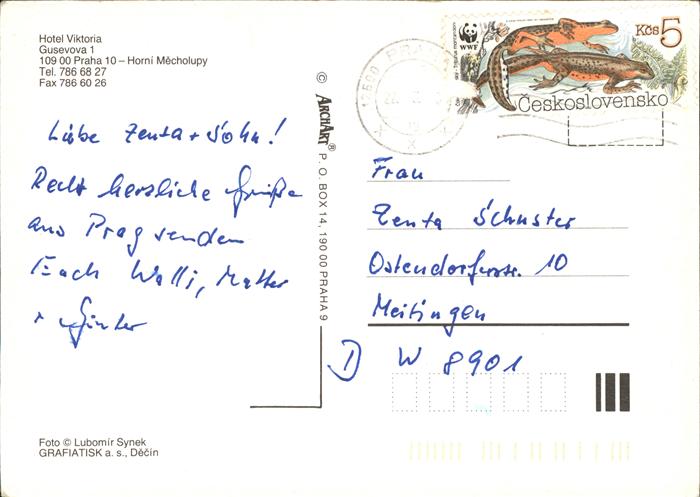 Hotel Viktoria
Gusevova 1
109 00 Praha 10 – Horní Měcholupy
Tel. 786 68 27
Fax 786 60 26
Liebe Zenta + Sohn!
Recht herzliche Grüße
aus Prag senden
Euch Walli, Mutter
+ Günter
Foto © Lubomír Synek
GRAFIATISK a. s., Děčín
© ARCHART® P. O. BOX 14, 190 00 PRAHA 9
WWF
Kčs 5
Československo
PRA
Frau
Zenta Schuster
Ostendorferstr. 10
Meitingen
D W 8901